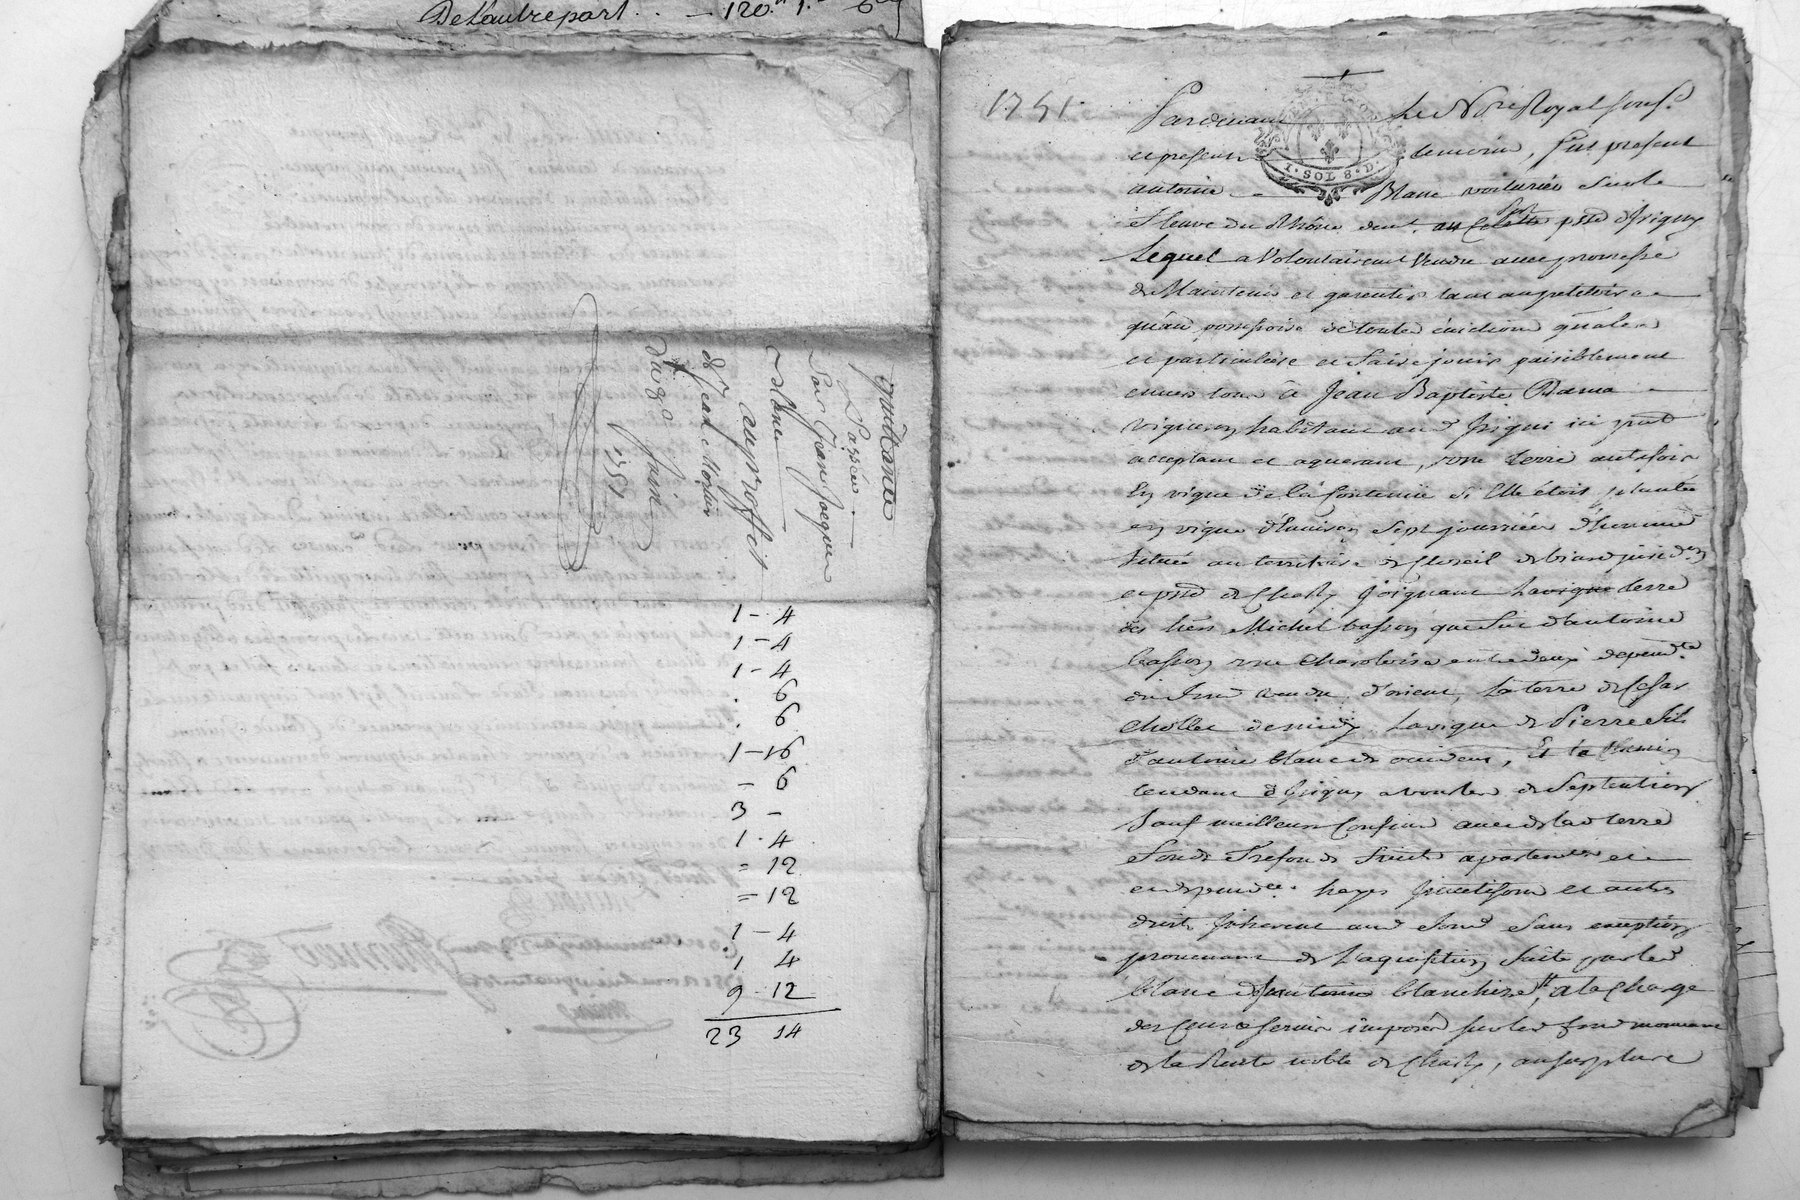 De Lautrepart . . — 120.tt 1. — 6
quittance
Passée
Par Jean Jacques
Blanc
au proffit
de Jean
du 8e Juin
1751
1 - 4
1 - 4
1 - 4
. 6
. 6
1 - 16
- 6
3 -
1 . 4
= 12
= 12
1 - 4
1 4
9 - 12
23 14
1751.
Pardevant Le Nre Royal souss.
et presents temoins, fut present
antoine Blanc voiturier sur le
fleuve du Rhône demt. psse d'Irigny
Lequel a Volontairement Vendu avec promesse
de Maintenir et garentir tant au petitoire
qu'au possessoire de toute éviction gnalle
et particuliere et faire jouir paisiblement
envers tous à Jean Baptiste Dama
vigneron habitant aud Irigni ici pnt
acceptant et aquerant, une terre autrefois
En vigne de la contenue si Elle étoit plantée
en vigne d'environ sept journées d'homme
située au territoire de
et psse de Charly joignant La vigne terre
des hers Michel basson que fut d'antoine
basson une charoloise entredeux dependte
du fond vendu d'orient, la terre de Cesar
chollet de midy. La vigne de Pierre fils
d'antoine blanc de occident, Et le Chemin
tendant d'Irigny a vourles de Septention
Sauf meilleurs Confins avec de lad terre
fonds Trefonds fruits apartences et
endependces. hayes et autres
droits Inherent aud fond sans exception
provenant de L'aquisition faitte par led
blanc d'antoine blancherd, a la Charge
des Cens & servis imposés sur led fond mouvant
de la Rente noble de Charly, au surplus